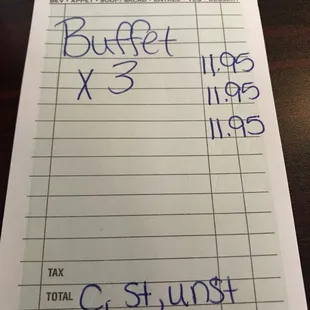 BEV • APPET • SOUP/SALAD • ENTREE • VEG • DESSERT
Buffet
x 3 11.95
11.95
11.95
TAX
TOTAL C, St, unst